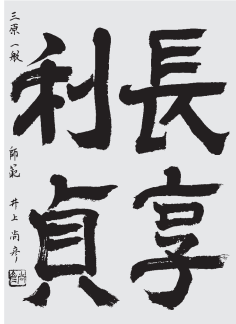 長享
利貞
三原 一般 師範 井上尚彦